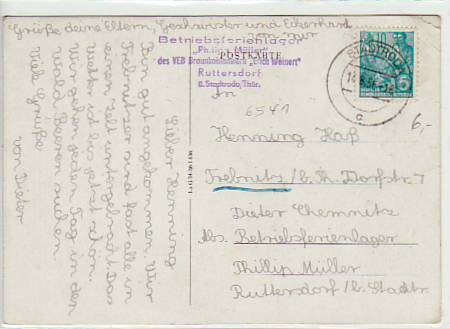 Grüße deine Eltern, Geschwister und Eckerhard
von mir
Lieber Henning
Bin gut angekommen. Wir
Trebnitzer sind fast alle in
einen Zelt untergebracht. Das
Wetter ist bis jetzt schön.
Wir gehen jeden Tag in den
Wald Beeren suchen.
Viele Grüße
von Dieter
Betriebsferienlager
"Philipp Müller"
des VEB Braunkohlenwerk "Erich Weinert"
Ruttersdorf
ü. Stadtroda/Thür.
POSTKARTE
STADTRODA
10
An
6541
6,-
Henning Haß
Trebnitz/b.Th. Dorfstr. 7
Dieter Chemnitz
Abs. Betriebsferienlager
Phillip Müller
Ruttersdorf/b. Stadtr.